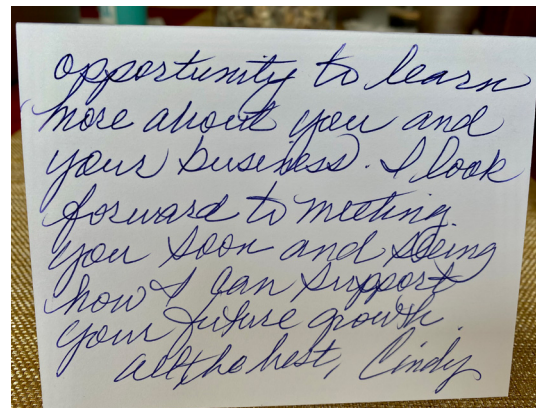 opportunity to learn
more about you and
your business. I look
forward to meeting
you soon and seeing
how I can support
your future growth.
All the best, Cindy